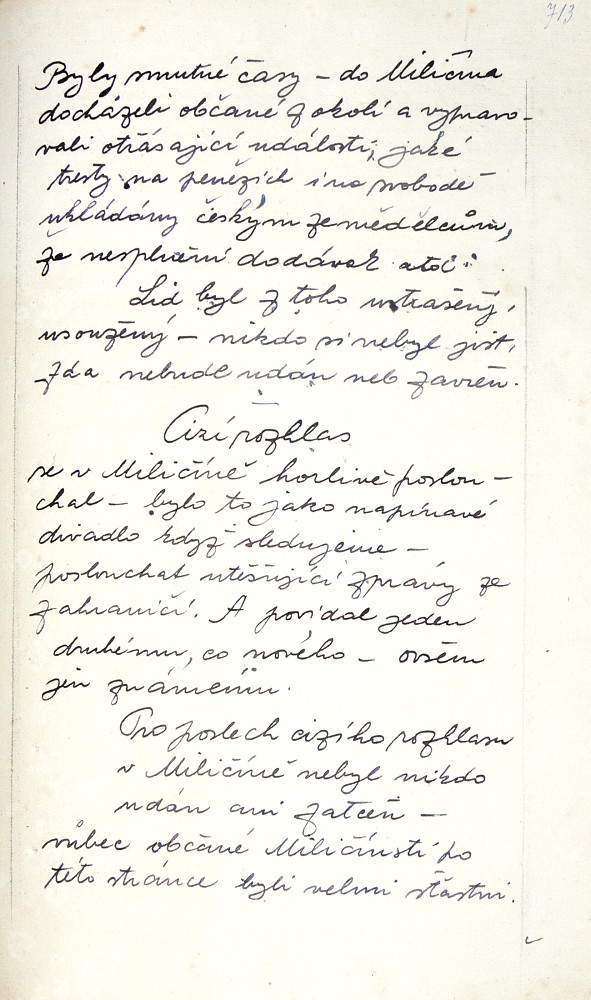 713
Byly smutné časy – do Miličína
docházeli občané z okolí a vypravo-
vali otřásající události, jaké
tresty na penězích i na svobodě
ukládány českým zemědělcům,
za nesplnění dodávek atd.
Lid byl z toho ustrašený,
usoužený – nikdo si nebyl jist,
zda nebude udán neb zavřen.
Cizí rozhlas
se v Miličíně horlivě poslou-
chal – bylo to jako napínavé
divadlo když sledujeme –
poslouchat utěšující zprávy ze
zahraničí. A povídal jeden
druhému, co nového – ovšem
jen známému.
Pro poslech cizího rozhlasu
v Miličíně nebyl nikdo
udán ani zatčen –
vůbec občané Miličínští po
této stránce byli velmi šťastni.